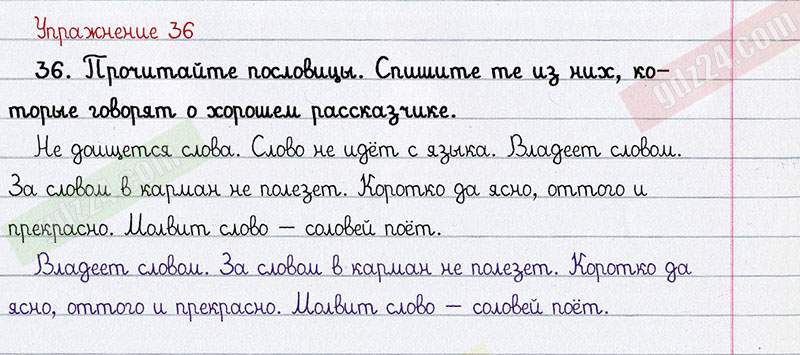 Упражнение 36
ydz24.com
36. Прочитайте пословицы. Спишите те из них, ко-
торые говорят о хорошем рассказчике.
Не доищется слова. Слово не идёт с языка. Владеет словом.
За словом в карман не полезет. Коротко да ясно, оттого и
прекрасно. Молвит слово — соловей поёт.
ydz24.com
Владеет словом. За словом в карман не полезет. Коротко да
ясно, оттого и прекрасно. Молвит слово — соловей поёт.